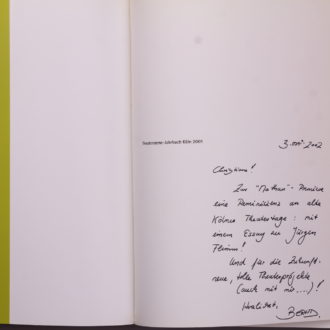 Theatrszene-Jahrbuch Köln 2001
3. Nov. 2002
Christiane!
Zur "Nathan"-Premiere
eine Reminiszenz an alte
Kölner Theatertage: mit
einem Essay zu Jürgen
Flimm!
Und für die Zukunft:
neue, tolle Theaterprojekte
(auch mit mir....)!
Herzlichst,